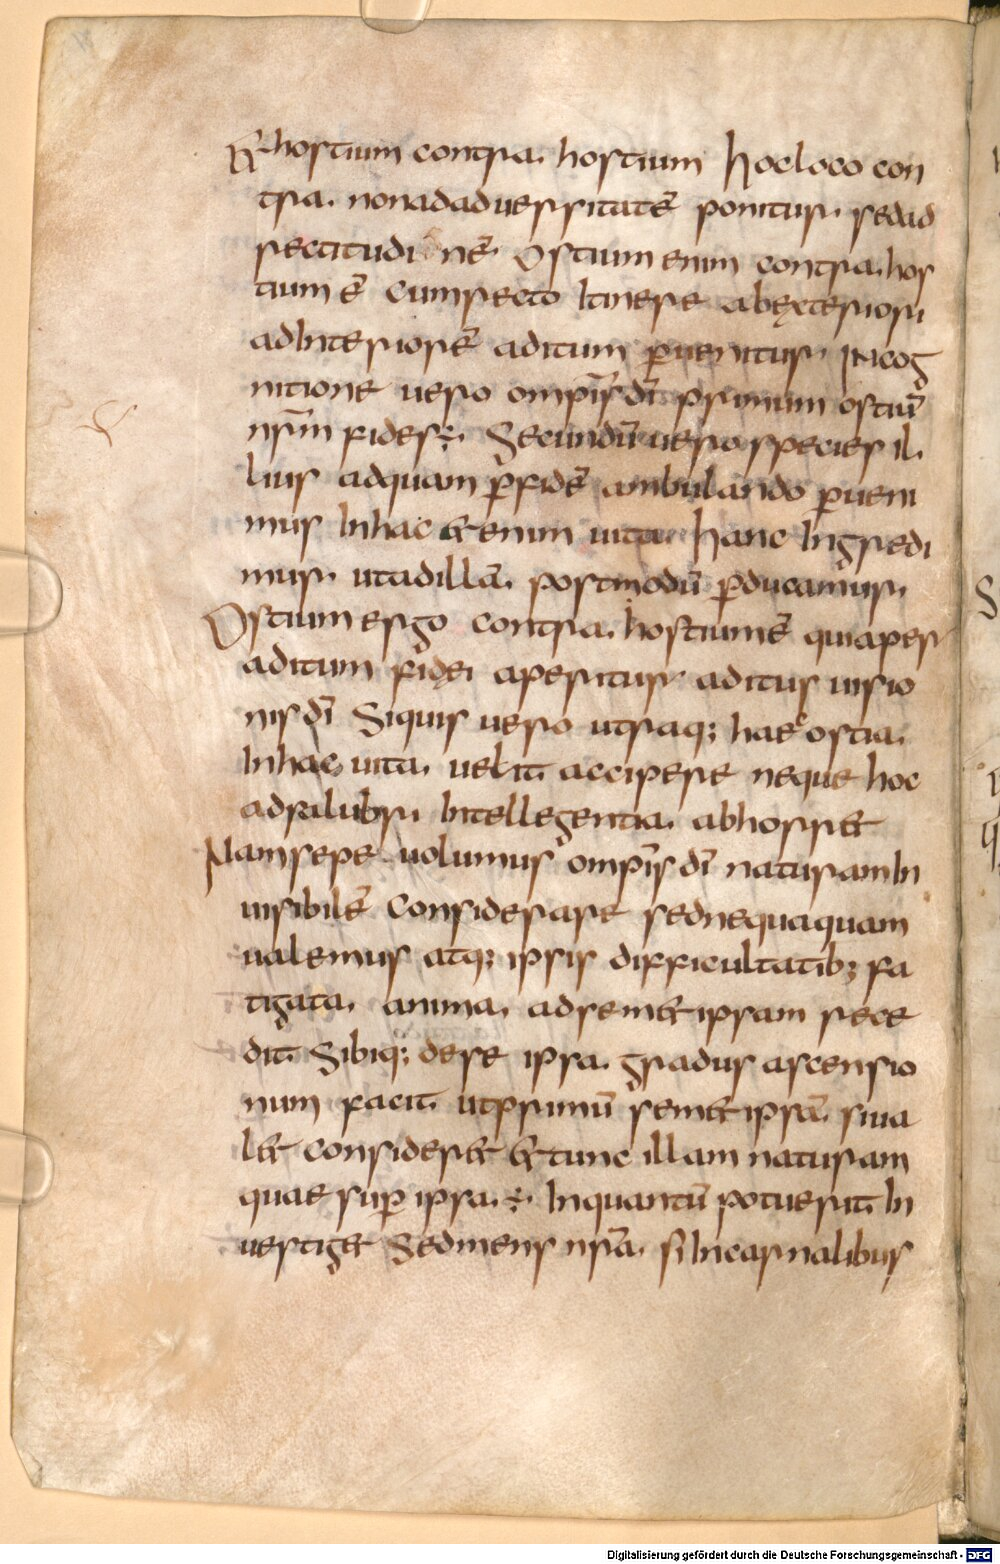 & hostium contra. hostium hoc loco con
tra. non ad aduersitatē ponitur. sed ad
rectitudi nē. Ostium enim contra. hos
tium ē cum recto itinere ab exteriori
ad interiorē aditum puenitur. In cog
nitione uero omp̄is dī primum ostiū
nr̄m fides ÷. Secundū uero species il.
lius ad quam p̄ fidē ambulando pueni
mus In hac & enim uita hanc Ingredi
mur. ut ad illā. postmodū pducamur.
Ostium ergo contra. hostium ē quia per
aditum fidei aperitur aditus uisio
nis dī Si quis uero utraq; haec ostia.
In hac uita. uelit accipere neque hoc
a salubri Intellegentia. abhorr&
Nam sepe uolumus omp̄is dī naturam In
uisibilē considerare sed nequaquam
ualemus atq; ipsis difficultatib; fa
tigata. anima. ad sem&ipsam rece
dit Sibiq; de se ipsa. gradus ascensio
num facit ut primū sem&ipsā. si ua
l& consider& & tunc illam naturam
quae sup ipsa. ÷. Inquantū potuerit In
uestig& Sed mens nr̄a. si In carnalibus
Digitalisierung gefördert durch die Deutsche Forschungsgemeinschaft - DFG